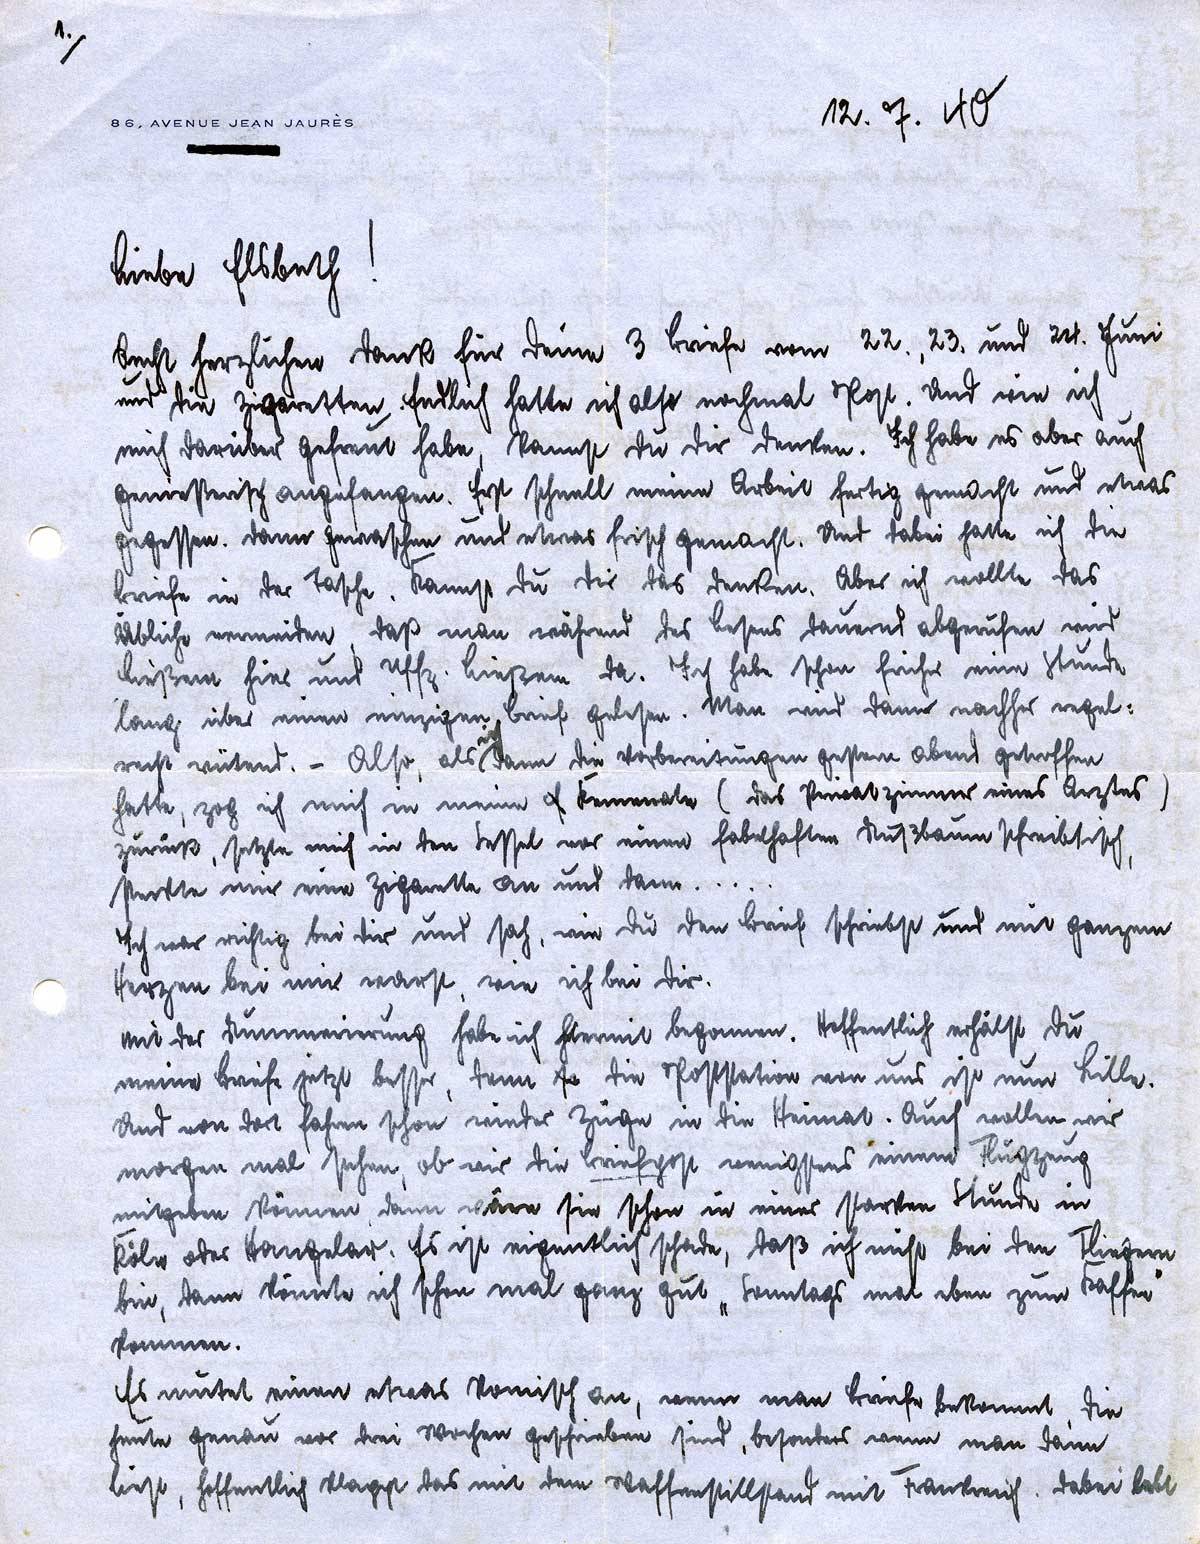 1./
86, AVENUE JEAN JAURÈS
12. 7. 40
Liebe Elsbeth!
Recht herzlichen Dank für Deine 3 Briefe vom 22., 23. und 24. Juni
und die Zigaretten. Endlich hatte ich also nochmal Post. Und wie ich
mich darüber gefreut habe, kannst Du Dir denken. Ich habe es aber auch
genießerisch angefangen. Erst schnell meine Arbeit fertig gemacht und etwas
gegessen. Dann gewaschen und etwas frisch gemacht. Und dabei hatte ich die
Briefe in der Tasche. Kannst Du Dir das denken. Aber ich wollte das
Übliche vermeiden, daß man während des Lesens dauernd abgerufen wird
hier und Uffz. da. Ich habe schon früher eine Stunde
lang über einen einzigen Brief gelesen. Man wird dann nachher regel-
recht wütend. – Also, als ich dann die Vorbereitungen gestern abend getroffen
hatte, zog ich mich in meine Kemenate (das Privatzimmer eines Arztes)
zurück, setzte mich in den Sessel vor einen fabelhaften Nußbaumschreibtisch,
steckte mir eine Zigarette an und dann.....
Ich war richtig bei Dir und sah, wie Du den Brief schriebst und mit ganzem
Herzen bei mir warst, wie ich bei Dir.
Mit der Nummerierung habe ich hiermit begonnen. Hoffentlich erhälst Du
meine Briefe jetzt besser, denn die Poststation von uns ist nun Lille.
Und von dort fahren schon wieder Züge in die Heimat. Auch wollen wir
morgen mal sehen, ob wir die Briefpost wenigstens einem Flugzeug
mitgeben können, dann wäre sie schon in einer starken Stunde in
Köln oder Hangelar. Es ist eigentlich schade, daß ich nicht bei den Fliegern
bin, dann könnte ich schon mal ganz gut „Sonntags mal eben zum Kaffee"
kommen.
Es mutet einen etwas komisch an, wenn man Briefe bekommt, die
heute genau vor drei Wochen geschrieben sind, besonders wenn man dann
liest, hoffentlich klappt das mit dem Waffenstillstand mit Frankreich. Dabei lebt